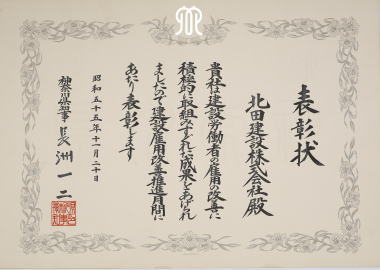 表彰状
北田建設株式会社殿
貴社は建設労働者の雇用の改善に
積極的に取組みすぐれた成果をあげられ
ましたので建設雇用改善推進月間に
あたり表彰します
昭和五十五年十一月二十日
神奈川県知事 長洲一二